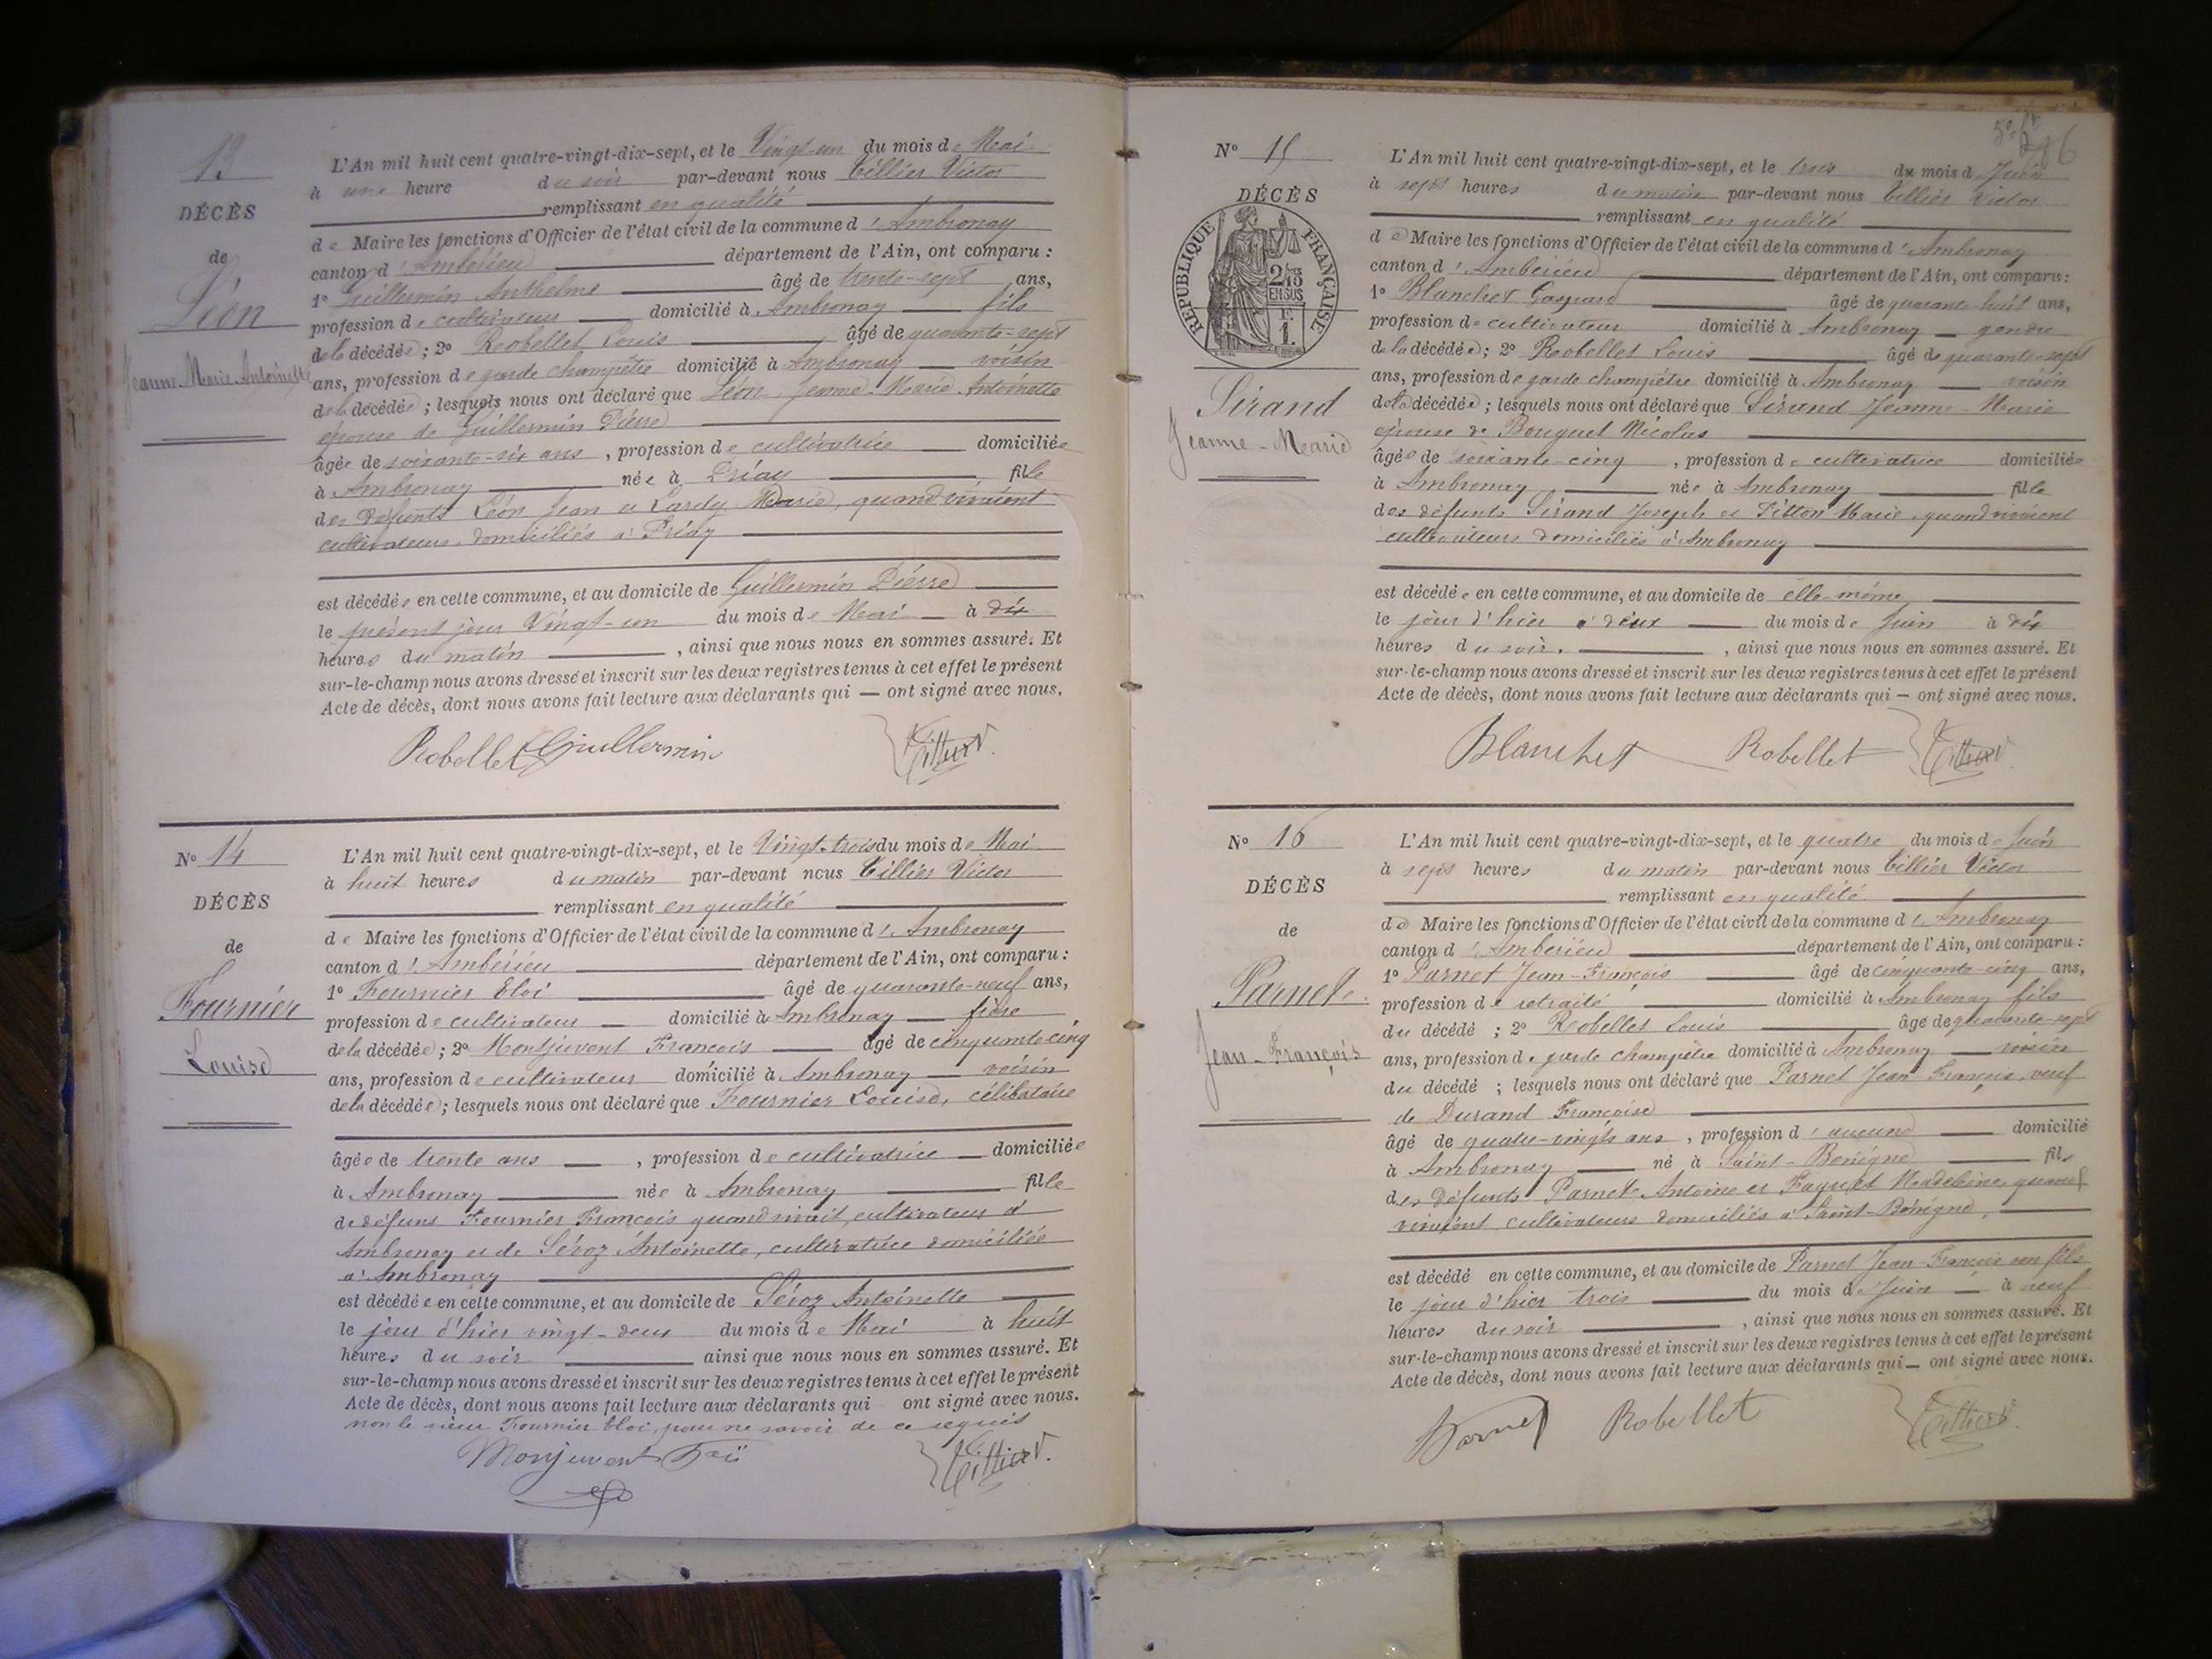 13
DÉCÈS
de
Léon
Jeanne Marie Antoinette
L'An mil huit cent quatre-vingt-dix-sept, et le Vingt-un du mois de Mai
à une heure du soir par-devant nous Tillier Victor
remplissant en qualité
de Maire les fonctions d'Officier de l'état civil de la commune d'Ambronay
canton d'Ambérieu département de l'Ain, ont comparu :
1° Guillermin Anthelme âgé de trente-sept ans,
profession de cultivateur domicilié à Ambronay fils
de la décédée ; 2° Robellet Louis âgé de quarante-sept
ans, profession de garde champêtre domicilié à Ambronay voisin
de la décédée ; lesquels nous ont déclaré que Léon Jeanne-Marie Antoinette
épouse de Guillermin Pierre
âgée de soixante-six ans, profession de cultivatrice domiciliée
à Ambronay née à Priay fille
des défunts Léon Jean et Lardy Marie, quand vivaient
cultivateurs domiciliés à Priay
est décédée en cette commune, et au domicile de Guillermin Pierre
le présent jour Vingt-un du mois de Mai à dix
heures du matin, ainsi que nous nous en sommes assuré. Et
sur-le-champ nous avons dressé et inscrit sur les deux registres tenus à cet effet le présent
Acte de décès, dont nous avons fait lecture aux déclarants qui ont signé avec nous.
Robellet Guillermin Tillier V.
N° 14
DÉCÈS
de
Fournier
Louise
L'An mil huit cent quatre-vingt-dix-sept, et le Vingt-trois du mois de Mai
à huit heures du matin par-devant nous Tillier Victor
remplissant en qualité
de Maire les fonctions d'Officier de l'état civil de la commune d'Ambronay
canton d'Ambérieu département de l'Ain, ont comparu :
1° Fournier Eloi âgé de quarante-neuf ans,
profession de cultivateur domicilié à Ambronay frère
de la décédée ; 2° Montjuvent François âgé de cinquante-cinq
ans, profession de cultivateur domicilié à Ambronay voisin
de la décédée ; lesquels nous ont déclaré que Fournier Louise, célibataire
âgée de trente ans, profession de cultivatrice domiciliée
à Ambronay née à Ambronay fille
de défunt Fournier François quand vivait, cultivateur à
Ambronay et de Sévoz Antoinette, cultivatrice domiciliée
à Ambronay
est décédée en cette commune, et au domicile de Sévoz Antoinette
le jour d'hier vingt-deux du mois de Mai à huit
heures du soir ainsi que nous nous en sommes assuré. Et
sur-le-champ nous avons dressé et inscrit sur les deux registres tenus à cet effet le présent
Acte de décès, dont nous avons fait lecture aux déclarants qui ont signé avec nous.
non le sieur Fournier Eloi, pour ne savoir de ce requis
Monjuvent Tillier V.
N° 15
DÉCÈS
RÉPUBLIQUE FRANÇAISE
2/10 EN SUS
F. 1.
Sirand
Jeanne-Marie
L'An mil huit cent quatre-vingt-dix-sept, et le trois du mois de Juin
à sept heures du matin par-devant nous Tillier Victor
remplissant en qualité
de Maire les fonctions d'Officier de l'état civil de la commune d'Ambronay
canton d'Ambérieu département de l'Ain, ont comparu :
1° Blanchet Gaspard âgé de quarante-huit ans,
profession de cultivateur domicilié à Ambronay gendre
de la décédée ; 2° Robellet Louis âgé de quarante-sept
ans, profession de garde champêtre domicilié à Ambronay voisin
de la décédée ; lesquels nous ont déclaré que Sirand Jeanne-Marie
épouse de Bouquet Nicolas
âgée de soixante-cinq, profession de cultivatrice domiciliée
à Ambronay née à Ambronay fille
des défunts Sirand Joseph et Marie, quand vivaient
cultivateurs domiciliés à Ambronay
est décédée en cette commune, et au domicile de elle-même
le jour d'hier deux du mois de Juin à dix
heures du soir, ainsi que nous nous en sommes assuré. Et
sur-le-champ nous avons dressé et inscrit sur les deux registres tenus à cet effet le présent
Acte de décès, dont nous avons fait lecture aux déclarants qui ont signé avec nous.
Blanchet Robellet Tillier V.
N° 16
DÉCÈS
de
Parnet
Jean-François
L'An mil huit cent quatre-vingt-dix-sept, et le quatre du mois de Juin
à sept heures du matin par-devant nous Tillier Victor
remplissant en qualité
de Maire les fonctions d'Officier de l'état civil de la commune d'Ambronay
canton d'Ambérieu département de l'Ain, ont comparu :
1° Parnet Jean-François âgé de cinquante-cinq ans,
profession de retraité domicilié à Ambronay fils
du décédé ; 2° Robellet Louis âgé de quarante-sept
ans, profession de garde champêtre domicilié à Ambronay voisin
du décédé ; lesquels nous ont déclaré que Parnet Jean-François, veuf
de Durand Françoise
âgé de quatre-vingts ans, profession d'aucune domicilié
à Ambronay né à Saint-Bénigne fils
des défunts Parnet Antoine et Madeleine, quand
vivaient cultivateurs domiciliés à Saint-Bénigne,
est décédé en cette commune, et au domicile de Parnet Jean-François son fils
le jour d'hier trois du mois de Juin à neuf
heures du soir, ainsi que nous nous en sommes assuré. Et
sur-le-champ nous avons dressé et inscrit sur les deux registres tenus à cet effet le présent
Acte de décès, dont nous avons fait lecture aux déclarants qui ont signé avec nous.
Parnet Robellet Tillier V.